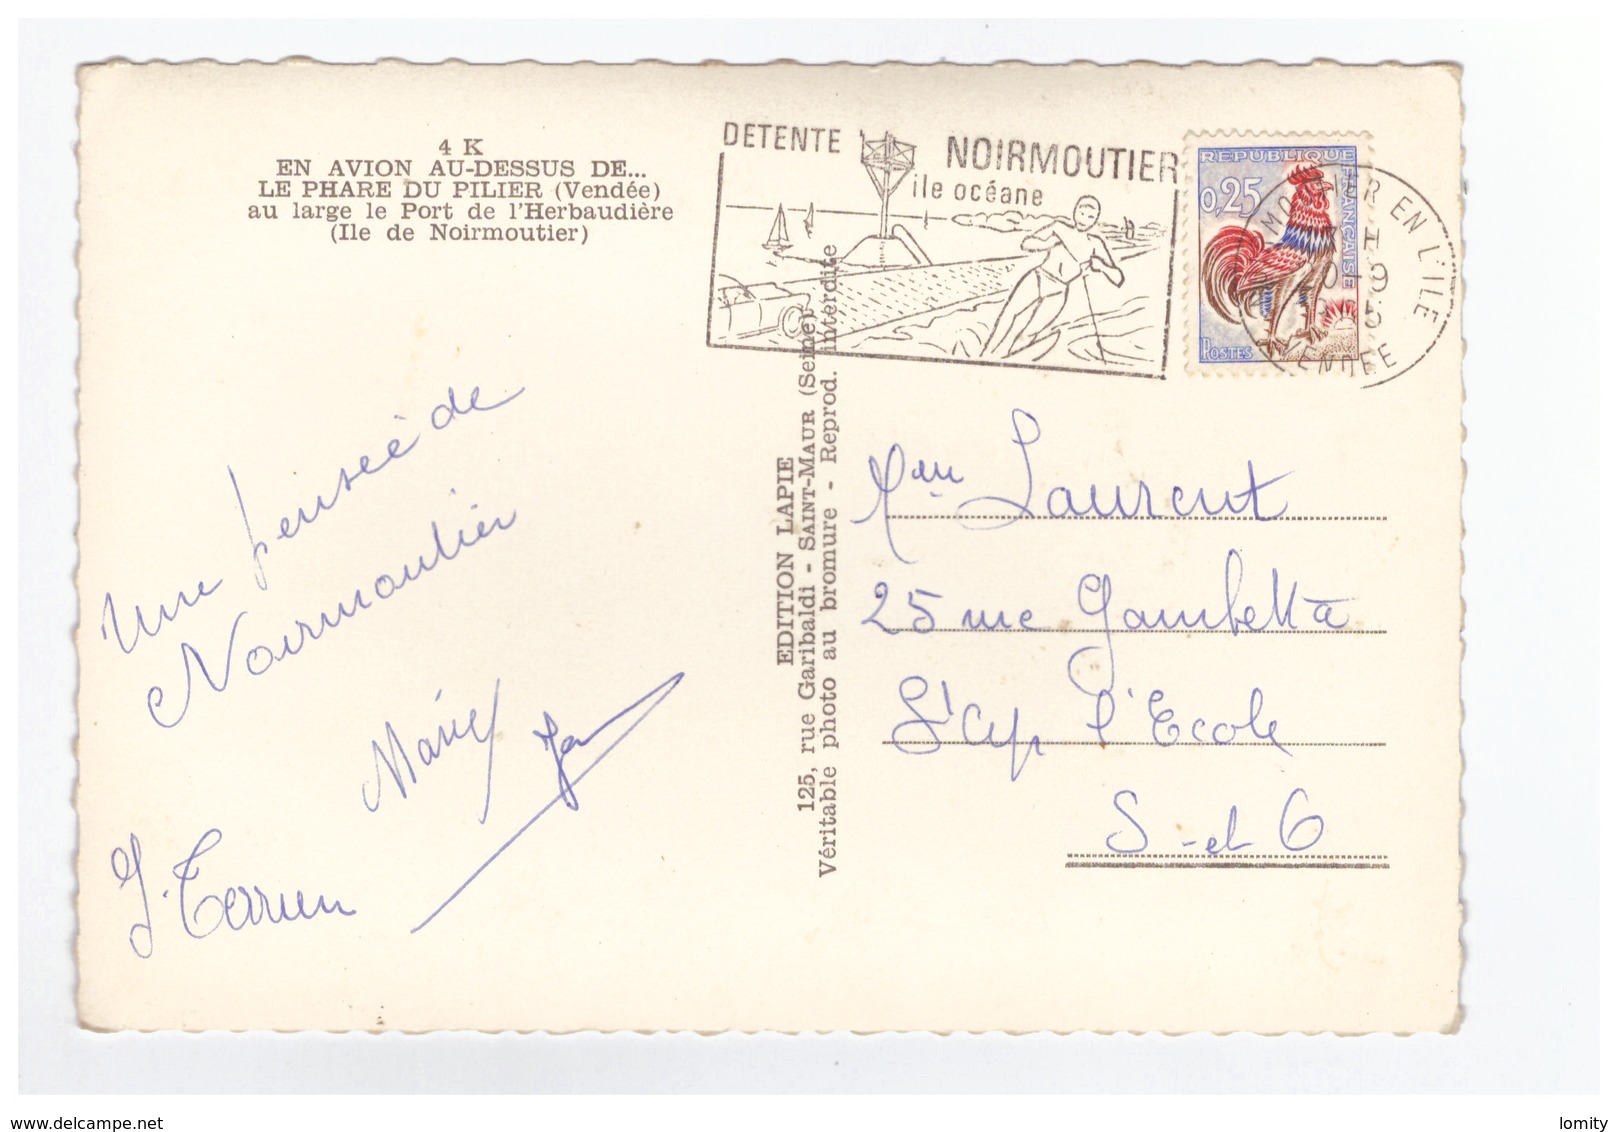 4 K
EN AVION AU-DESSUS DE...
LE PHARE DU PILIER (Vendée)
au large le Port de l'Herbaudière
(Ile de Noirmoutier)
DETENTE NOIRMOUTIER
ile océane
REPUBLIQUE FRANÇAISE
0,25
POSTES
EN L'ILE
VENDEE
Une pensée de
Noirmoutier
Marie
J. Terrien
EDITION LAPIE
125, rue Garibaldi - SAINT-MAUR (Seine)
Véritable photo au bromure - Reprod. interdite
Laurent
25 rue Gambetta
St Cyr l'Ecole
S-et O
delcampe.net
lomity